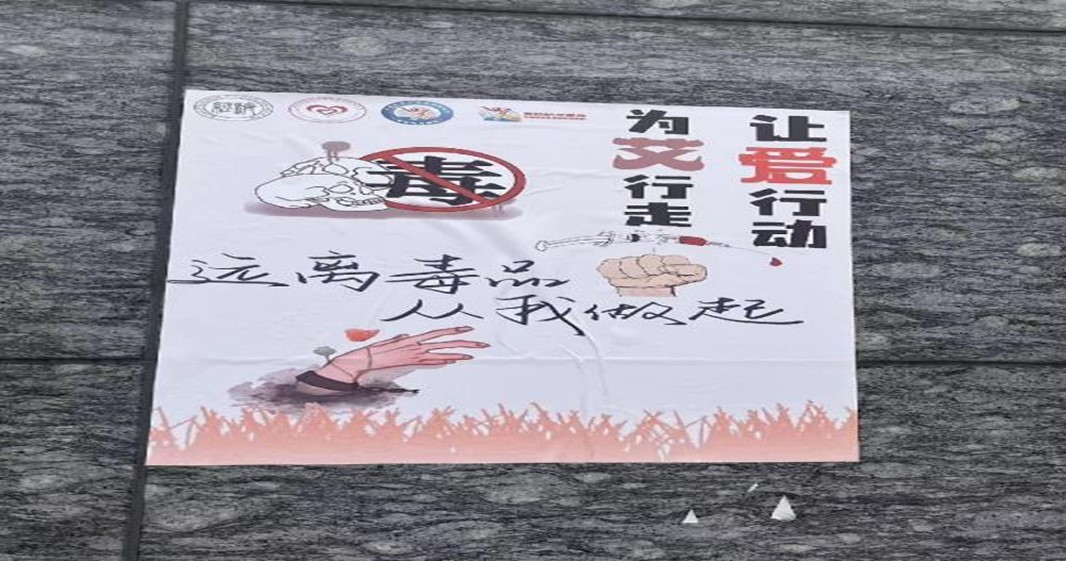 让爱行动
为艾行走
毒
远离毒品
从我做起